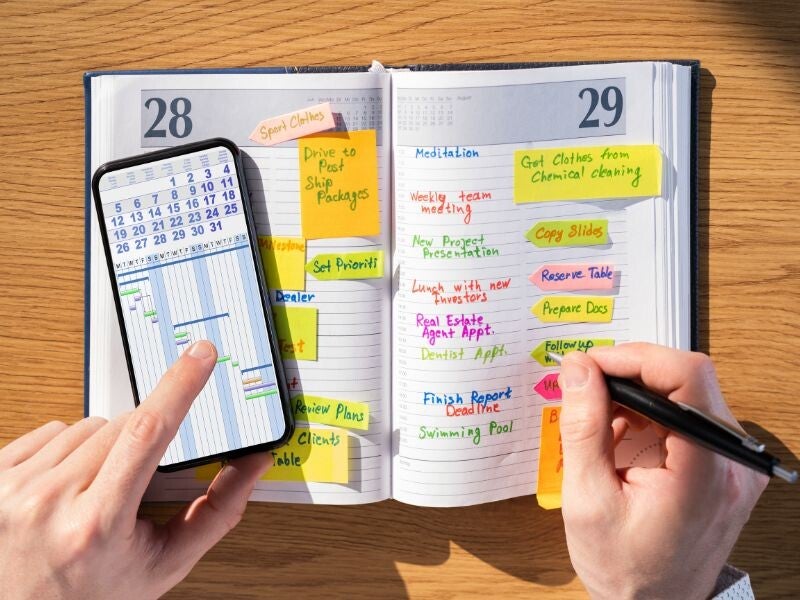 28
Sport Clothes
Drive to
Post
Ship
Packages
Milestone
Set Prioriti
Dealer
Test
Review Plans
Clients
Table
1 2 3 4
5 6 7 8 9 10 11
12 13 14 15 16 17 18
19 20 21 22 23 24 25
26 27 28 29 30 31
M T W T F S S M T W T F S S M T W T F S S
29
August
Meditation
Weekly team
meeting
New Project
Presentation
Lunch with new
Investors
Real Estate
Agent Appt.
Dentist Appt.
Finish Report
Deadline
Swimming Pool
Get Clothes from
Chemical cleaning
Copy Slides
Reserve Table
Prepare Docs
Follow up
UP
B